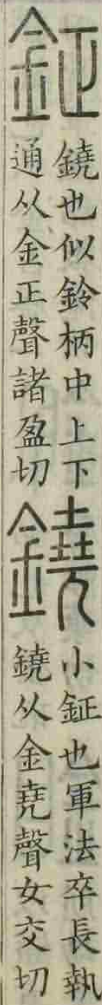 鉦
鐃也似鈴柄中上下
通从金正聲諸盈切
鐃
小鉦也軍法卒長執
鐃从金堯聲女交切